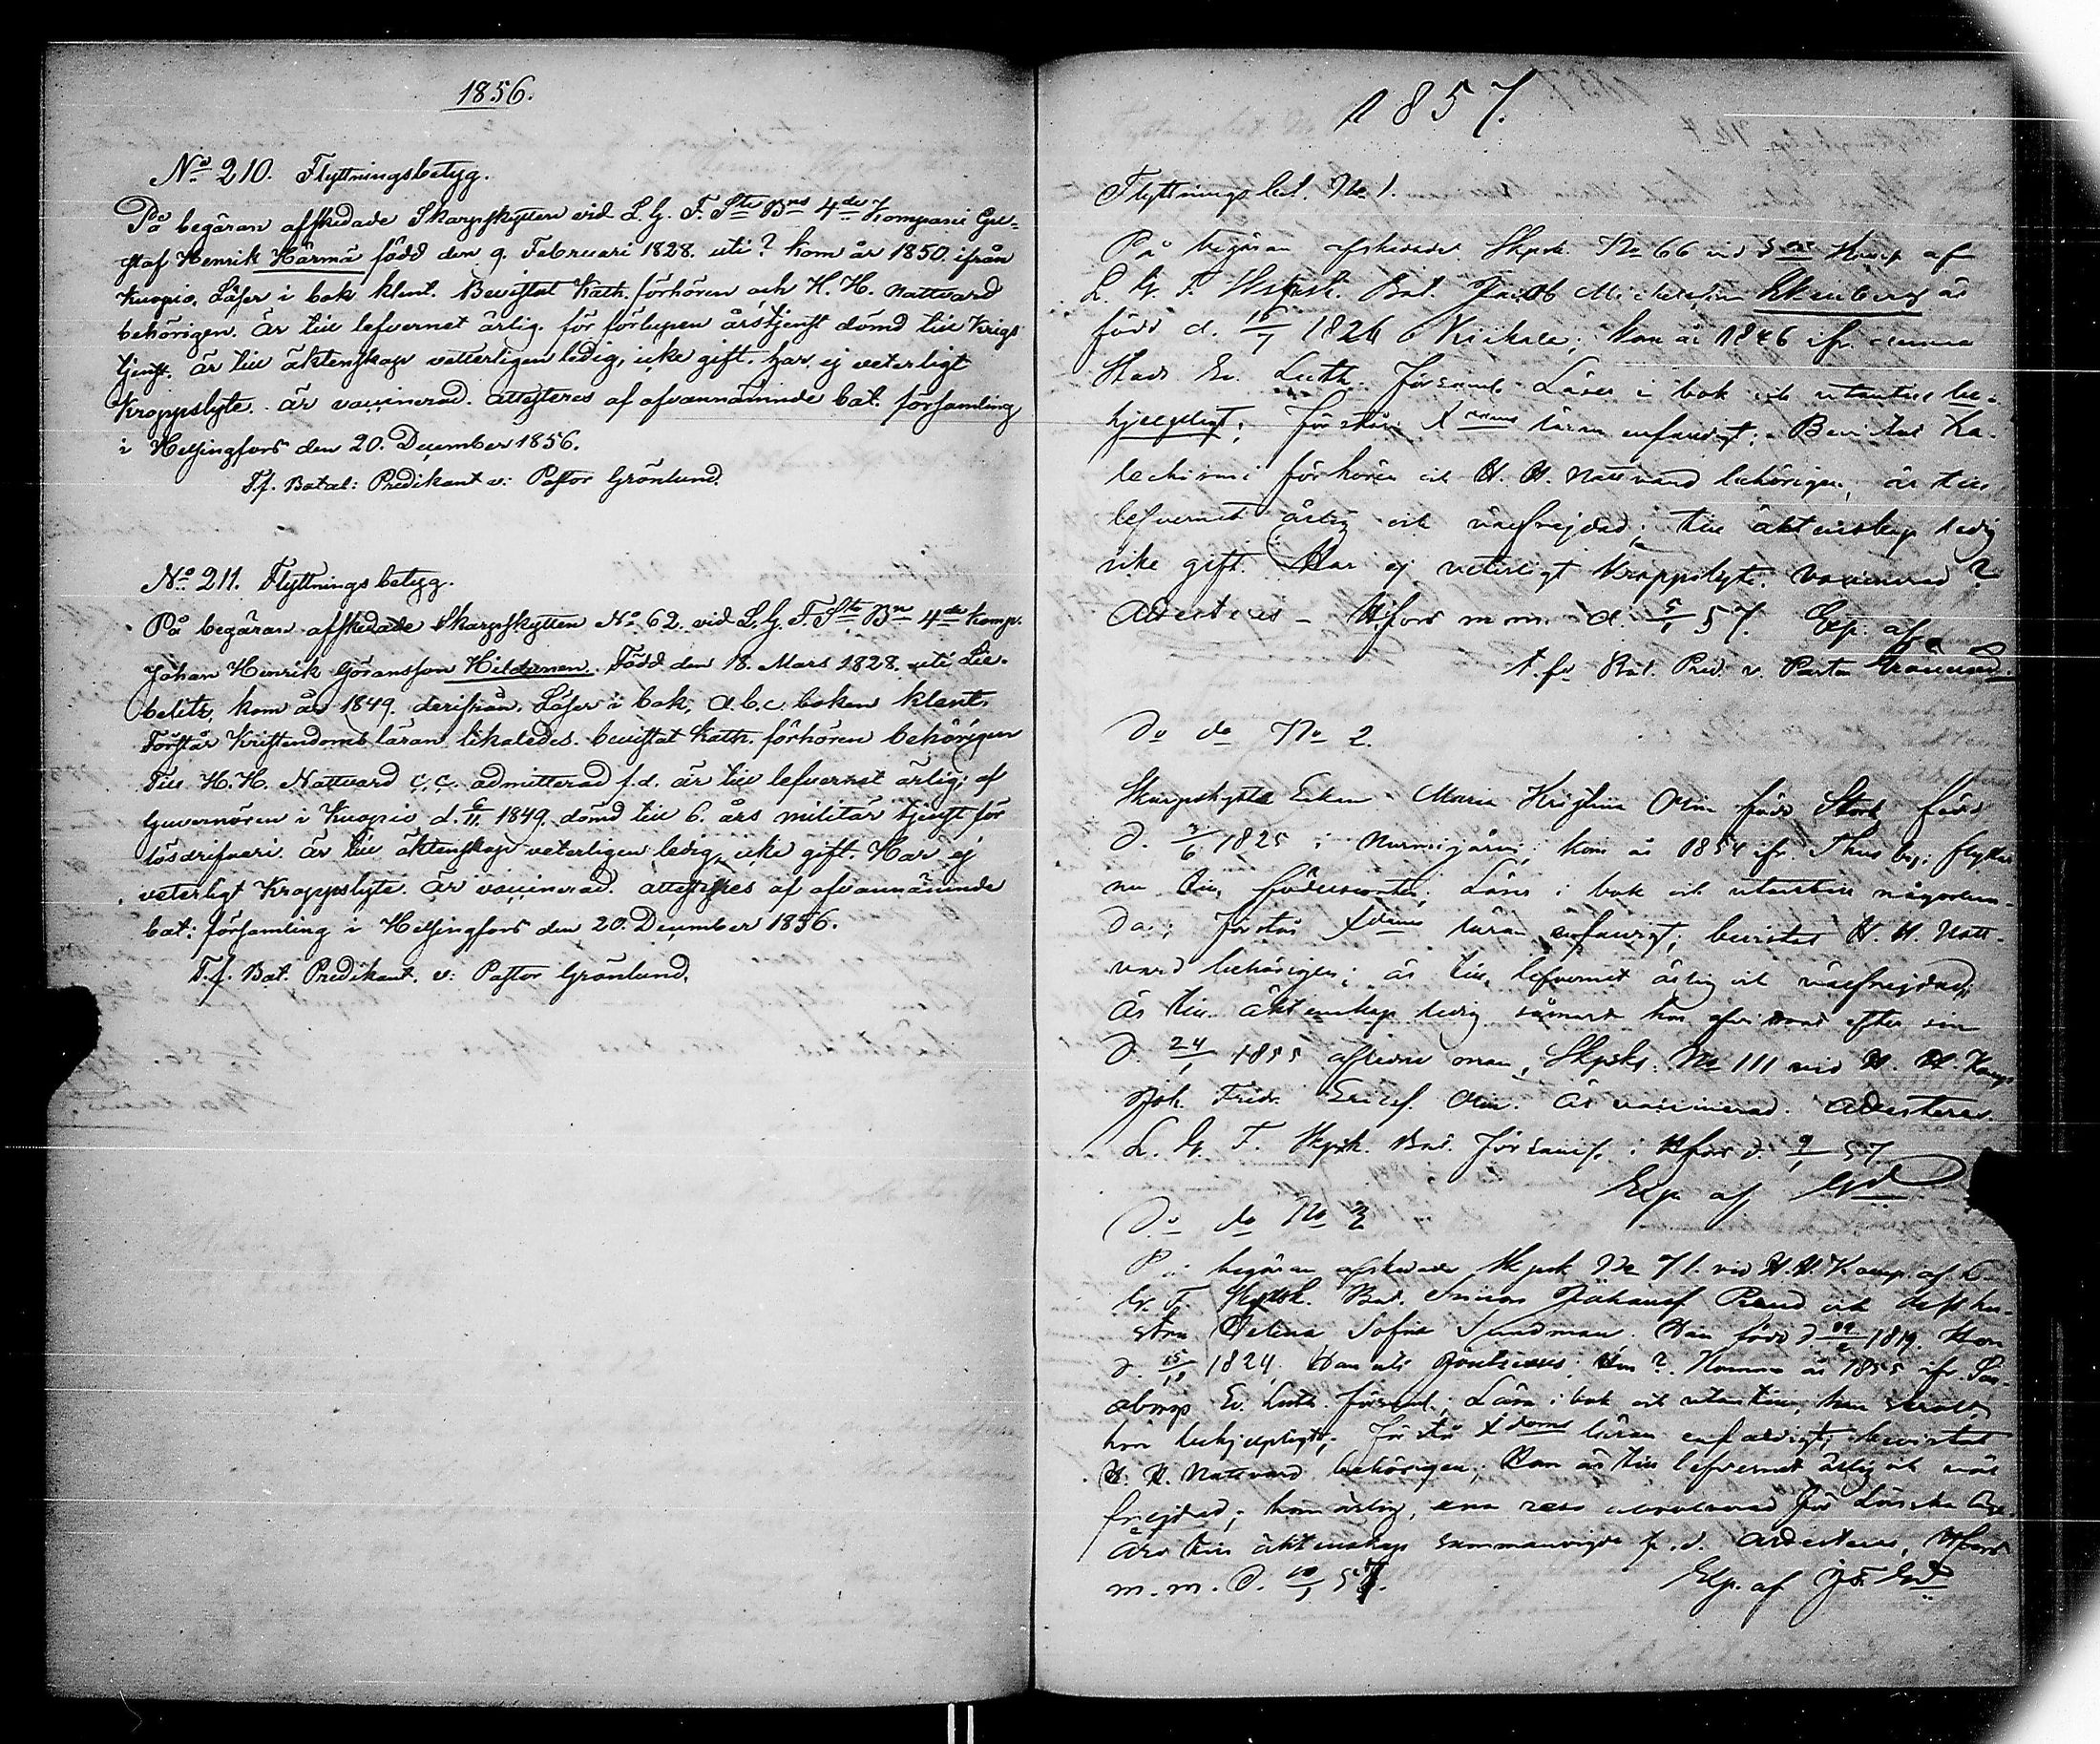 1856.
No 210. Flyttningsbetyg.
På begäran afskedade Skarpskytten vid L. G. F. S. Bns 4de Kompani Gu-
staf Henrik Härmä född den 9. Februari 1828. uti? kom år 1850. ifrån
Kuopio. Läser i bok klent. Bevistat Kath. förhören och H. H. Nattvard
behörigen. Är till lefvernet ärlig. för förlupen årstjenst dömd till Krigs
tjenst. är till äktenskap vetterligen ledig, icke gift. har ej veterligt
Kroppslyte. är vaccinerad. attesteras af ofvannämnde bat. församling
i Helsingfors den 20. December 1856.
T.f. Batal: Predikant v: Pastor Grönlund.
No 211. Flyttningsbetyg.
På begäran afskedade Skarpskytten No 62. vid L. G. F. S. Bn 4de Komp.
Johan Henrik Göransson Hildunen. Född den 18. Mars 1828. uti Lie-
belitz, kom år 1849. derifrån. Läser i bok, a.b.c. boken klent.
Förstår Kristendoms läran likaledes. bevistat Kath. förhören behörigen
Till H. H. Nattvard admitterad f.d. är till lefvernet ärlig; af
Guvernören i Kuopio d. 6/11 1849. dömd till 6. års militär tjenst för
lösdrifveri. är till äktenskap veterligen ledig, icke gift. Har ej
veterligt Kroppslyte. är vaccinerad. attesteres af ofvannämnde
bat: församling i Helsingfors den 20. December 1856.
T.f. Bat. Predikant. v: Pastor Grönlund.
1857.
Flyttnings bet. No 1.
På begäran afskedade Skpsk. No 66 vid Komp af
L. G. F. Skpsk. Bat. Jacob Ekenberg är
född d. 1826 kom år 1846 ifr. denna
Stads Ev. Luth. Församl. Läser i bok och utantill be-
hjelpligt; förstår Xdoms läran enfaldigt; Bevistat Ka-
techismi förhören och H. H. Nattvard behörigen, är till
lefvernet ärlig och välfrejdad; till äktenskap ledig
icke gift. Har ej veterligt kroppslyte. Vaccinerad?
Attesteres - Hfors m m. d. 5/1 57. Exp. af
t.f. Bat. Pred. v. Pastor Grönlund.
Do do No 2.
Skarpskytte Enkan Maria Kristina Olin född Stark född
d. 3/6 1825 i Nurmijärvi; kom år 1854 ifr. Thusby; flyttar
nu till födelseorten; Läser i bok och utantill någorlun-
da; förstår Xdoms läran enfaldigt; bevistat H. H. Natt-
vard behörigen; är till lefvernet ärlig och välfrejdad;
Är till äktenskap ledig efter sin
d. 24/1 1855 aflidne man, Skpsk. No 111 vid H. H. Komp
Joh. Fredr. Ericss. Olin. Är vaccinerad. Attesteres
L. G. F. Skpsk. Bat. Församl. i Hfors d. 9/1 57.
Exp. af Gd
Do do No 3
På begäran afskedade Skpsk No 71. vid H. H. Komp. af L.
G. F. Skpsk. Bat. Simon Johanss. och dess hu-
stru Sofia Sundman. Han född d. 1819. Hon
d. 1824. Han uti Hon? Komne år 1855 ifr.
Ev. Luth. Församl.; Läsa i bok och utantill, han
hon behjelpligt; förstå Xdoms läran enfaldigt; bevistat
H. H. Nattvard behörigen; Han är till lefvernet ärlig och väl
frejdad; hon ärlig, ena resa för
Äro till äktenskap sammanvigde f. d. Attesteres, Hfors
m. m. d. 10/1 57. Exp. af